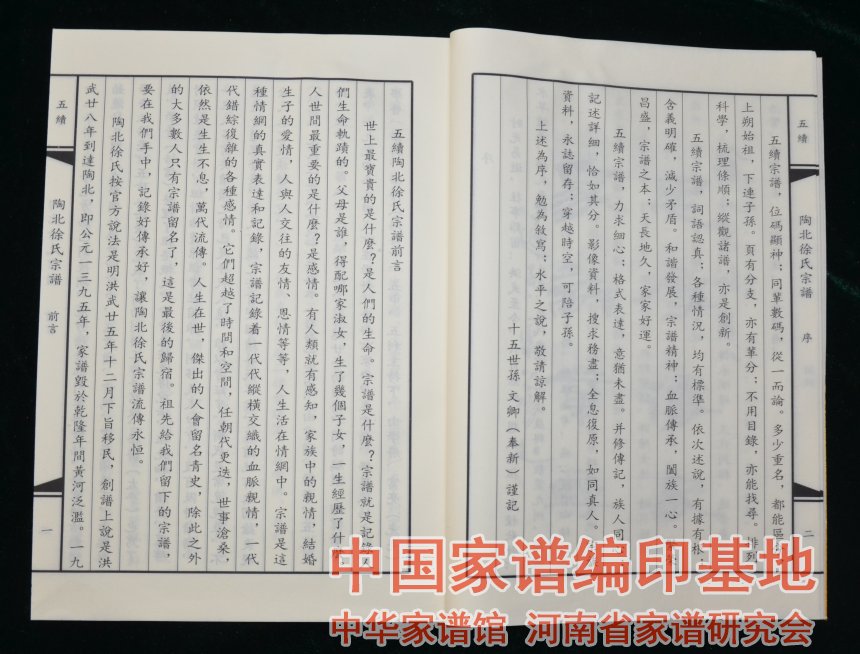 五續
陶北徐氏宗譜
序
二
五續宗譜，位碼顯神；同輩數碼，從一而論。多少重名，都能區
上朔始祖，下連子孫。頁有分支，亦有輩分；不用目錄，亦能找尋。排列
科學，梳理條順；縱觀諸譜，亦是創新。
五續宗譜，詞語認真；各種情況，均有標準。依次述說，有據有根
含義明確，減少矛盾。和諧發展，宗譜精神；血脈傳承，闔族一心。
昌盛，宗譜之本；天長地久，家家好運。
五續宗譜，力求細心；格式表達，意猶未盡。并修傳記，族人同
記述詳細，恰如其分。影像資料，搜求務盡；全息復原，如同真人。
資料，永誌留存；穿越時空，可陪子孫。
上述為序，勉為敘寫；水平之說，敬請諒解。
十五世孫 文卿（奉新）謹記
五續陶北徐氏宗譜前言
世上最寶貴的是什麼？是人們的生命。宗譜是什麼？宗譜就是記錄
們生命軌蹟的。父母是誰，得配哪家淑女，生了幾個子女，一生經歷了什
人世間最重要的是什麼？是感情。有人類就有感知，家族中的親情，結婚
生子的愛情，人與人交往的友情、恩情等等，人生活在情網中。宗譜是這
種情網的真實表達和記錄，宗譜記錄着一代代縱橫交織的血脈親情，一代
代錯綜復雜的各種感情。它們超越了時間和空間，任朝代更迭，世事滄桑，
依然是生生不息，萬代流傳。人生在世，傑出的人會留名青史，除此之外
的大多數人只有宗譜留名了，這是最後的歸宿。祖先給我們留下的宗譜，
要在我們手中，記錄好傳承好，讓陶北徐氏宗譜流傳永恒。
陶北徐氏按官方說法是明洪武廿五年十二月下旨移民，創譜上說是洪
武廿八年到達陶北，即公元一三九五年，家譜毀於乾隆年間黃河泛濫。一九
五續
陶北徐氏宗譜
前言
一
中国家谱编印基地
中华家谱馆 河南省家谱研究会